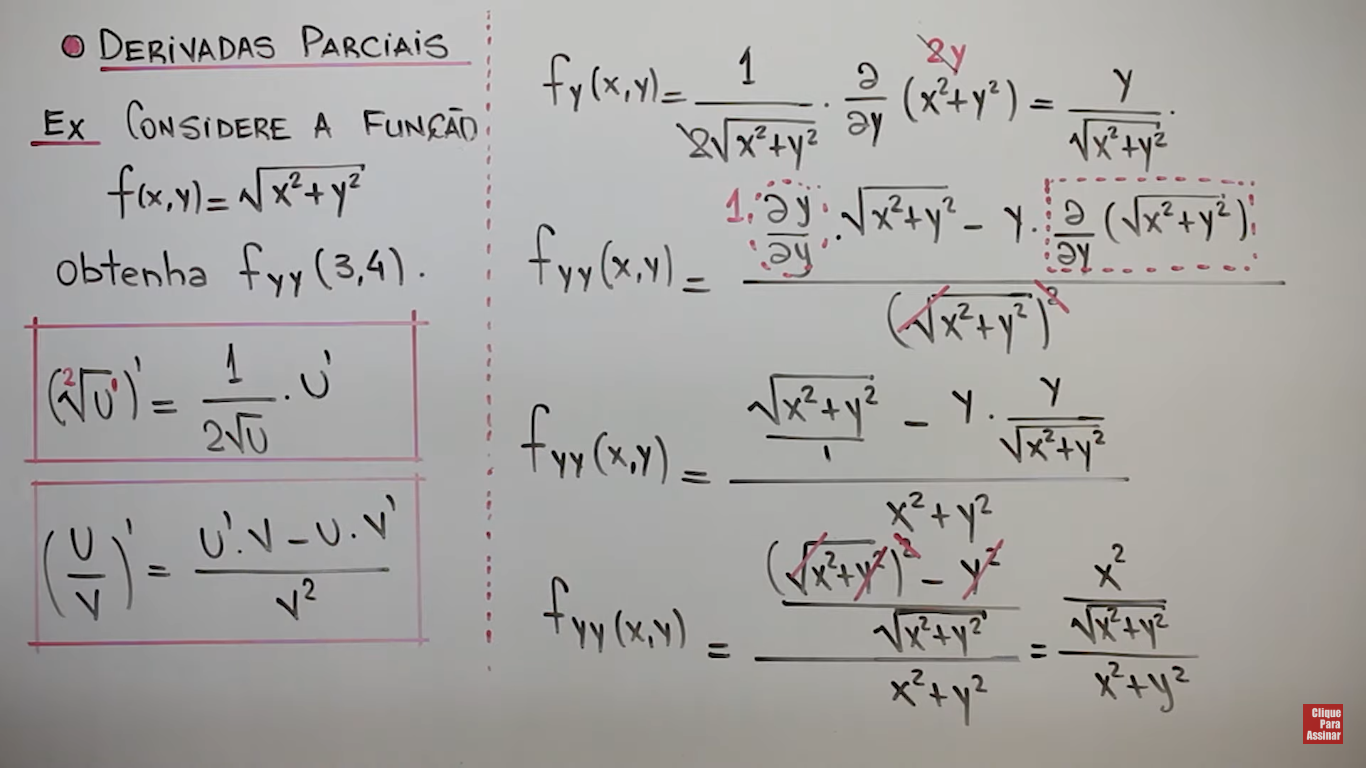 DERIVADAS PARCIAIS
EX CONSIDERE A FUNÇÃO
f(x,y) = √(x²+y²)
obtenha fyy(3,4).
(²√U¹)' = 1/(2√U) . U'
(U/V)' = (U'.V − U.V')/V²
2y
fy(x,y) = 1/(2√(x²+y²)) . ∂/∂y (x²+y²) = y/√(x²+y²).
fyy(x,y) = (1. ∂y/∂y . √(x²+y²) − y . ∂/∂y (√(x²+y²)))/(√(x²+y²))²
fyy(x,y) = (√(x²+y²)/1 − y . y/√(x²+y²))/(x²+y²)
fyy(x,y) = (((√(x²+y²))² − y²)/√(x²+y²))/(x²+y²) = (x²/√(x²+y²))/(x²+y²)
Clique
Para
Assinar